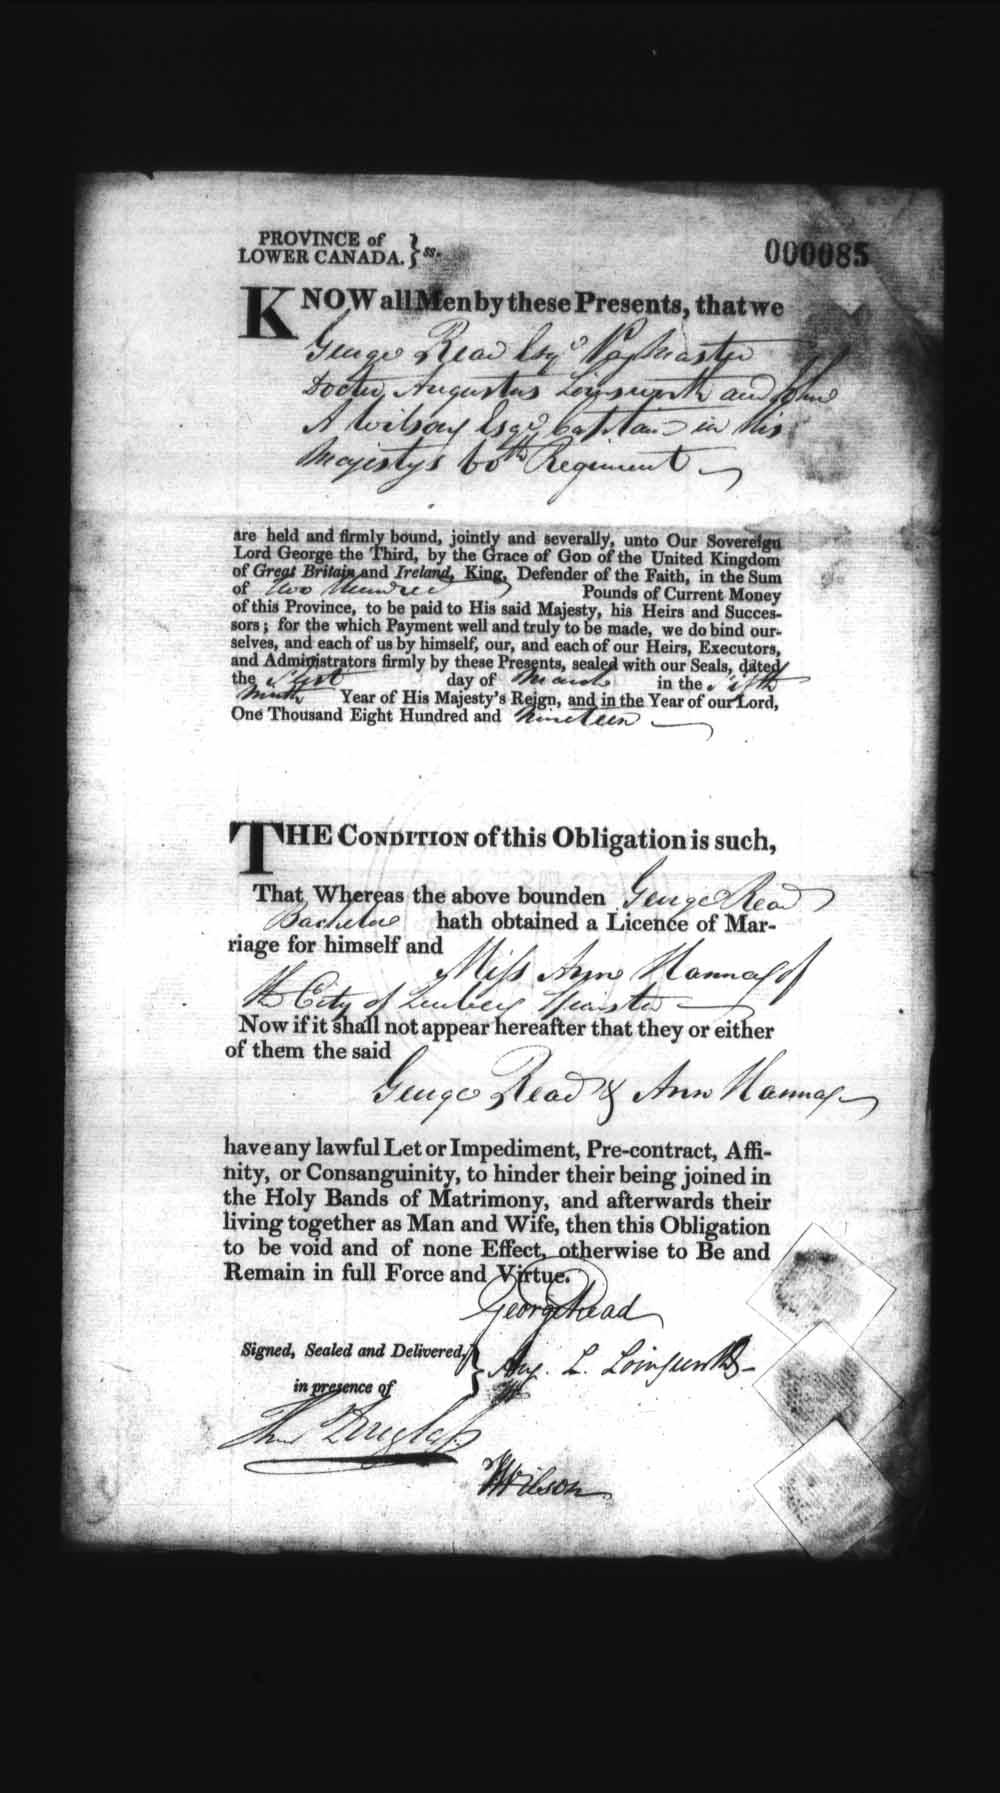 PROVINCE of
LOWER CANADA. } ss.
000085
KNOW all Men by these Presents, that we
George Read Esqr. Paymaster
Doctor Augustus Loinsworth and John
A Wilson Esqr. Captain in His
Majestys 60th Regiment
are held and firmly bound, jointly and severally, unto Our Sovereign
Lord George the Third, by the Grace of GOD of the United Kingdom
of Great Britain and Ireland, King, Defender of the Faith, in the Sum
of Two Hundred Pounds of Current Money
of this Province, to be paid to His said Majesty, his Heirs and Succes-
sors; for the which Payment well and truly to be made, we do bind our-
selves, and each of us by himself, our, and each of our Heirs, Executors,
and Administrators firmly by these Presents, sealed with our Seals, dated
the day of March in the Fifth
Ninth Year of His Majesty's Reign, and in the Year of our Lord,
One Thousand Eight Hundred and Nineteen
THE CONDITION of this Obligation is such,
That Whereas the above bounden George Read
Bachelor hath obtained a Licence of Mar-
riage for himself and
Miss Ann Hannay of
the City of Quebec Spinster
Now if it shall not appear hereafter that they or either
of them the said
George Read & Ann Hannay
have any lawful Let or Impediment, Pre-contract, Affi-
nity, or Consanguinity, to hinder their being joined in
the Holy Bands of Matrimony, and afterwards their
living together as Man and Wife, then this Obligation
to be void and of none Effect, otherwise to Be and
Remain in full Force and Virtue.
George Read
Signed, Sealed and Delivered,
Aug. L. Loinsworth
in presence of
Thos Douglass
Wilson